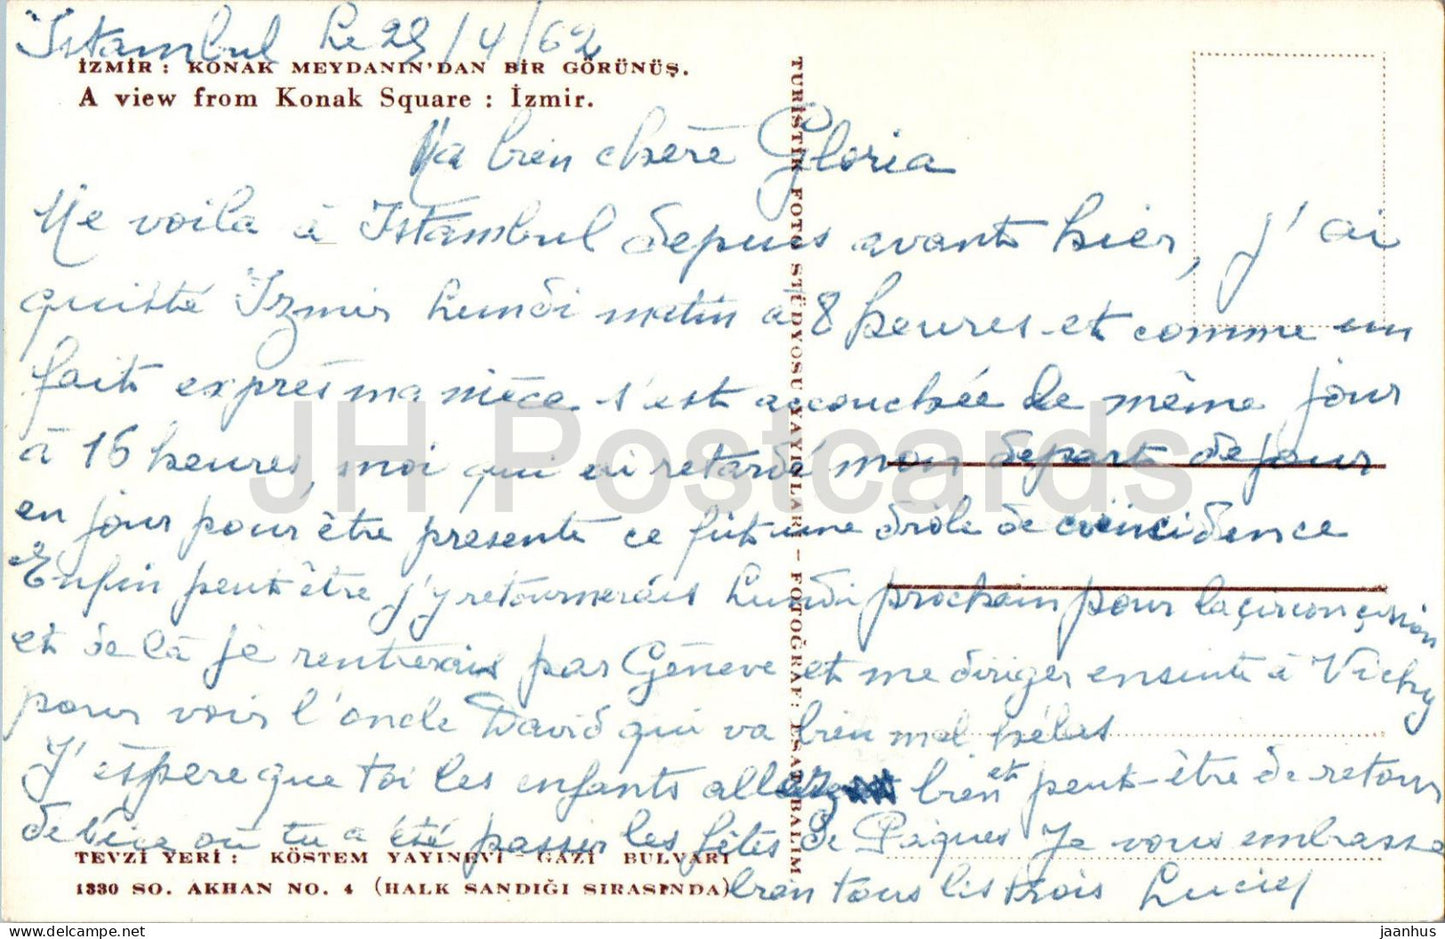 Istambul le 25/4/62
İZMİR : KONAK MEYDANIN'DAN BİR GÖRÜNÜŞ.
A view from Konak Square : İzmir.
Ma bien chère Gloria
Me voila à Istambul depuis avant hier, j'ai
quitté Izmir Lundi matin à 8 heures et comme un
fait exprès ma nièce s'est accouchée le même jour
à 16 heures, moi qui ai retardé mon depart de jour
en jour pour être presente ce fut une drôle de coincidence
Enfin peut être j'y retournerais Lundi prochain pour la çirconçission
et de là je rentrerais par Génève et me diriger ensuite à Vichy
pour voir l'oncle David qui va bien mal hélas
J'éspere que toi les enfants allez bien et peut-être de retour
de où tu a été passer les fêtes de Pâques Je vous embrasse
bien tous les trois Luciel
TEVZİ YERİ : KÖSTEM YAYINEVİ - GAZİ BULVARI
1330 SO. AKHAN NO. 4 (HALK SANDIĞI SIRASINDA)
TURİSTİK FOTO STÜDYOSU YAYINLARI - FOTOĞRAF: ESAT BALIM
JH Postcards
jaanhus
HipPostcard.com